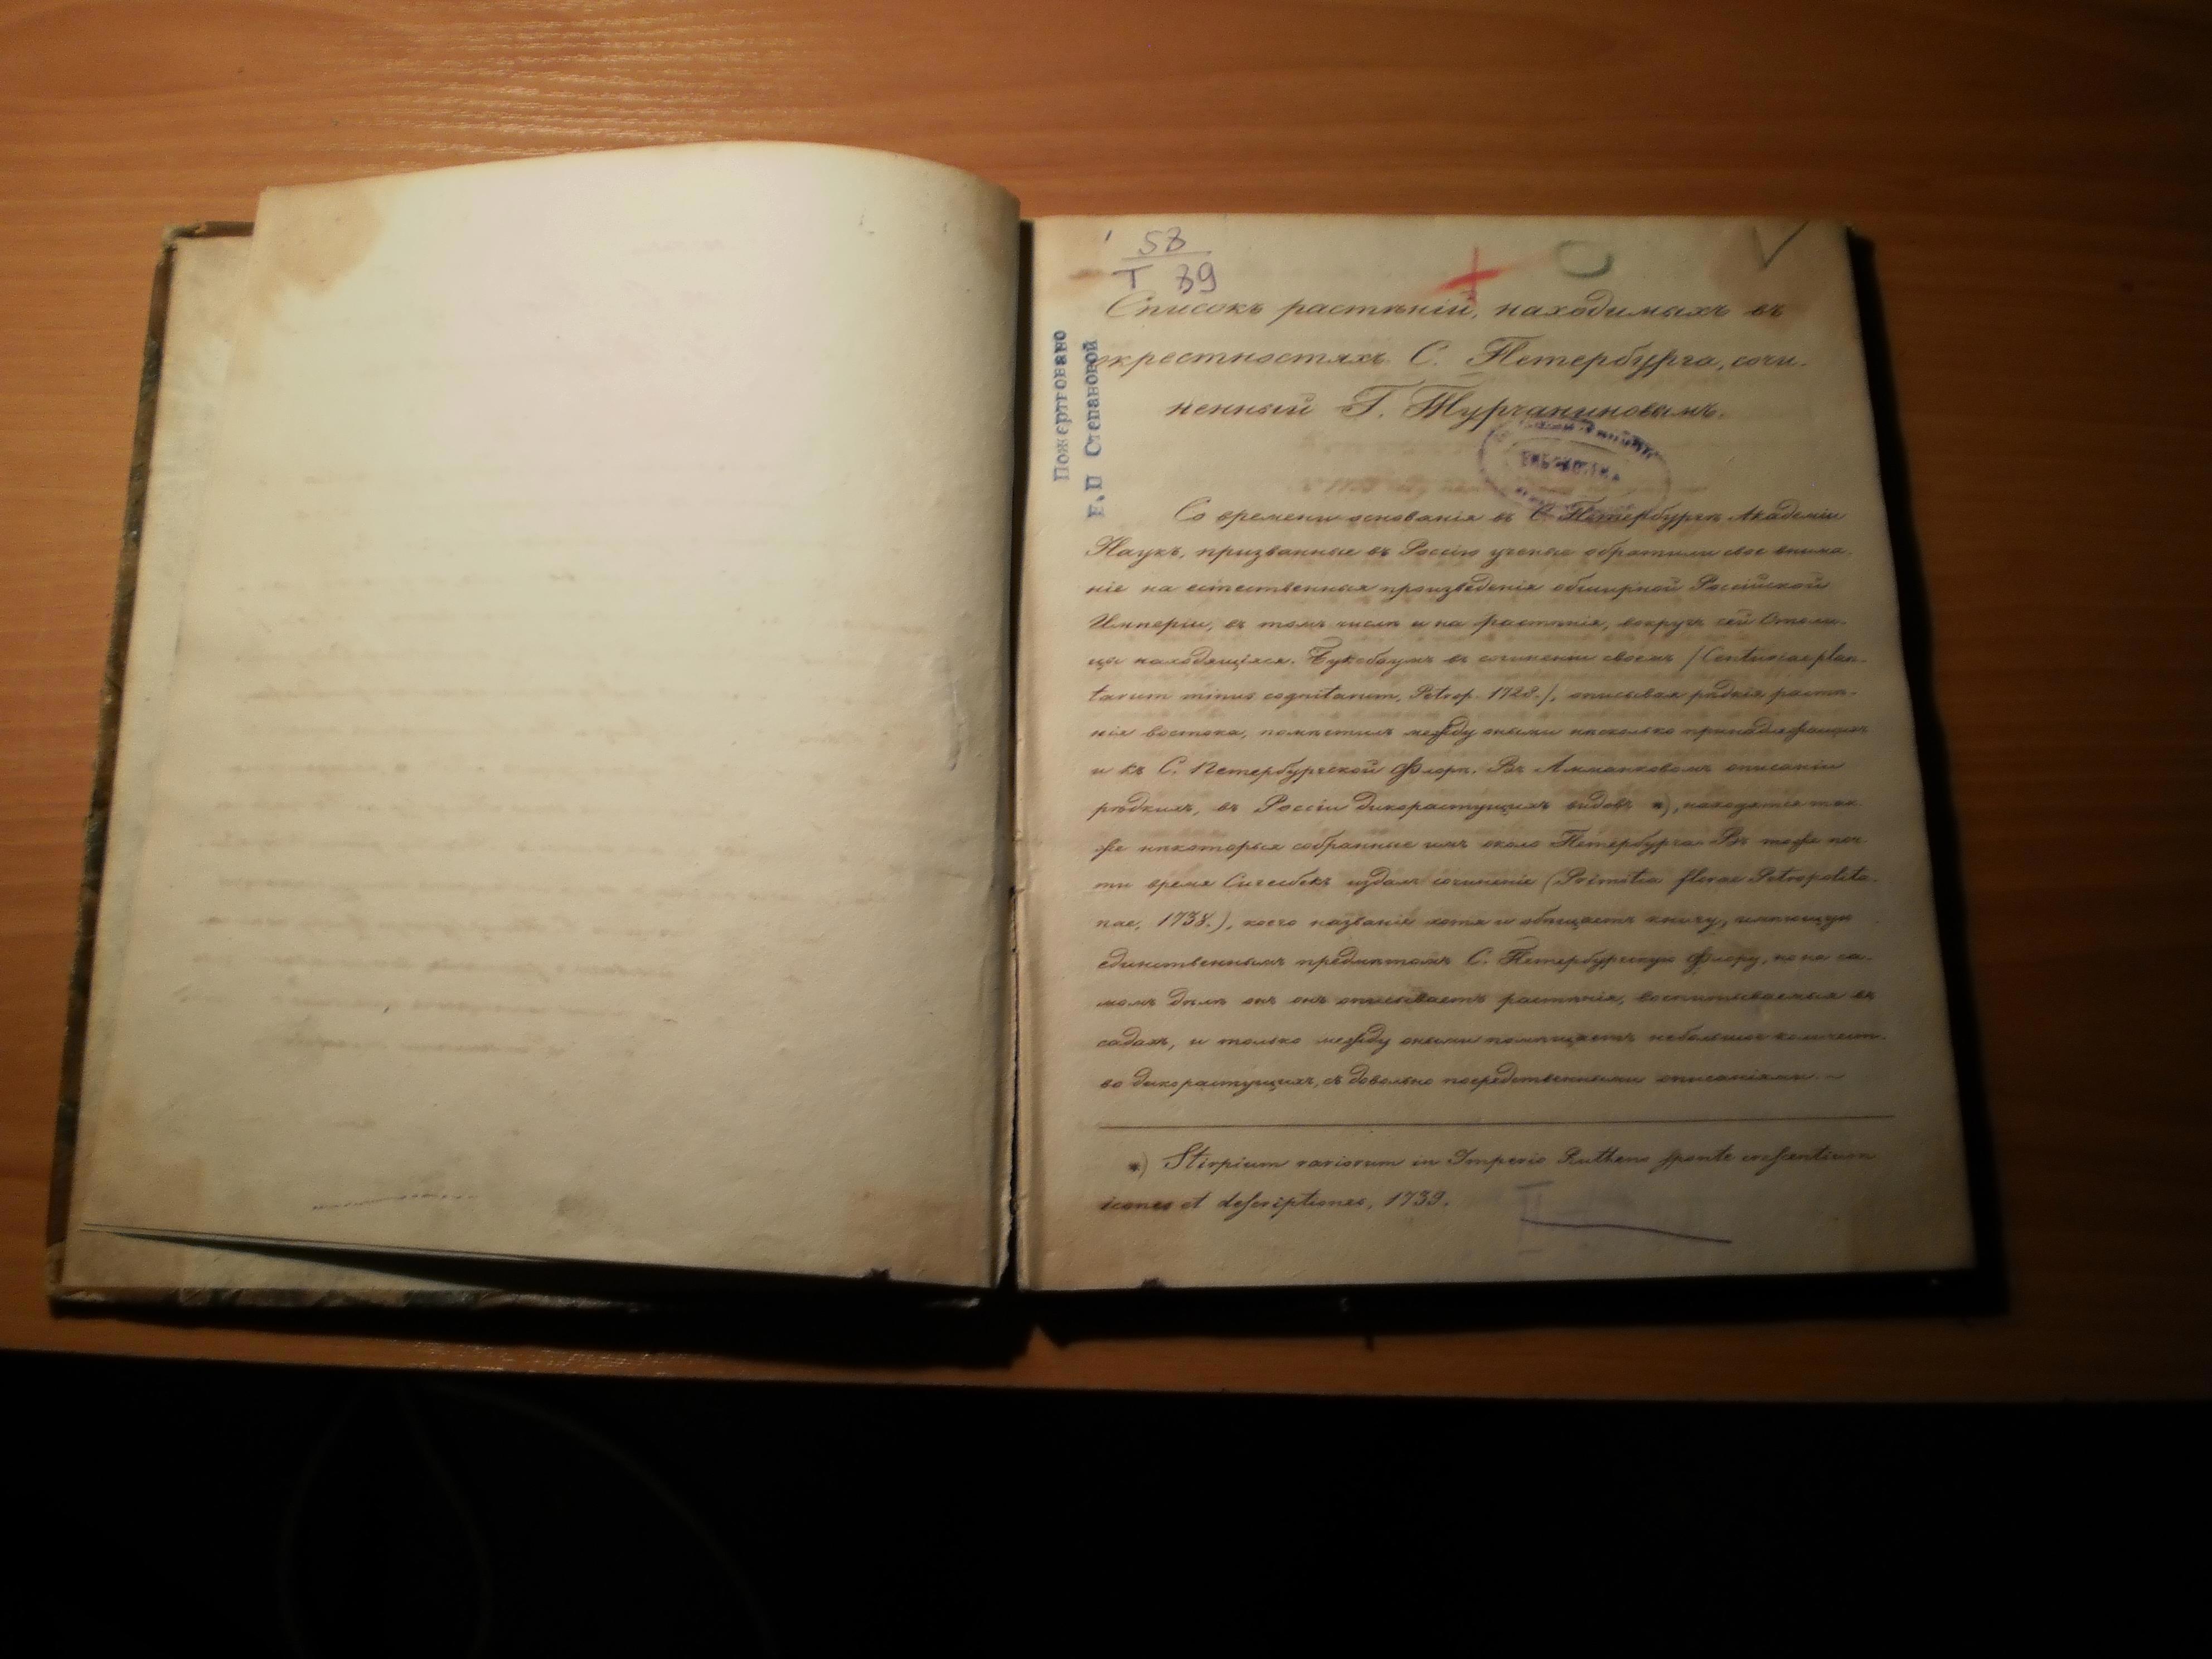 58
Т 89
Пожертвовано
Е. П Степановой
Списокъ растѣній, находимыхъ въ
окрестностяхъ С. Петербурга, сочи-
ненный Г. Турчаниновымъ.
БИБЛІОТЕКА
Со времени основанія въ С. Петербургѣ Академіи
Наукъ, призванные въ Россію ученые обратили свое внима-
ніе на естественныя произведенія обширной Россійской
Имперіи, въ томъ числѣ и на растѣнія, вокругъ сей Столи-
цы находящіяся. Буксбаумъ въ сочиненіи своемъ /Centuriae plan-
tarum minus cognitarum, Petrop. 1728./, описывая рѣдкія растѣ-
нія востока, помѣстилъ между оными нѣсколько принадлежащихъ
и къ С. Петербургской Флорѣ. Въ Аммановомъ описаніи
рѣдкихъ, въ Россіи дикорастущихъ видовъ *), находятся так-
же нѣкоторыя собранные имъ около Петербурга. Въ тоже поч-
ти время Сигесбекъ издалъ сочиненіе (Primitia florae Petropolita-
nae, 1738.), коего названіе хотя и обѣщаетъ книгу, имѣющую
единственнымъ предмѣтомъ С. Петербургскую Флору, но на са-
момъ дѣлѣ онъ онъ описываетъ растѣнія, воспитываемыя въ
садахъ, и только между оными помѣщаетъ небольшое количест-
во дикорастущихъ, съ довольно посредственными описаніями. –
*) Stirpium rariorum in Imperio Rutheno sponte crescentium
icones et descriptiones, 1739.